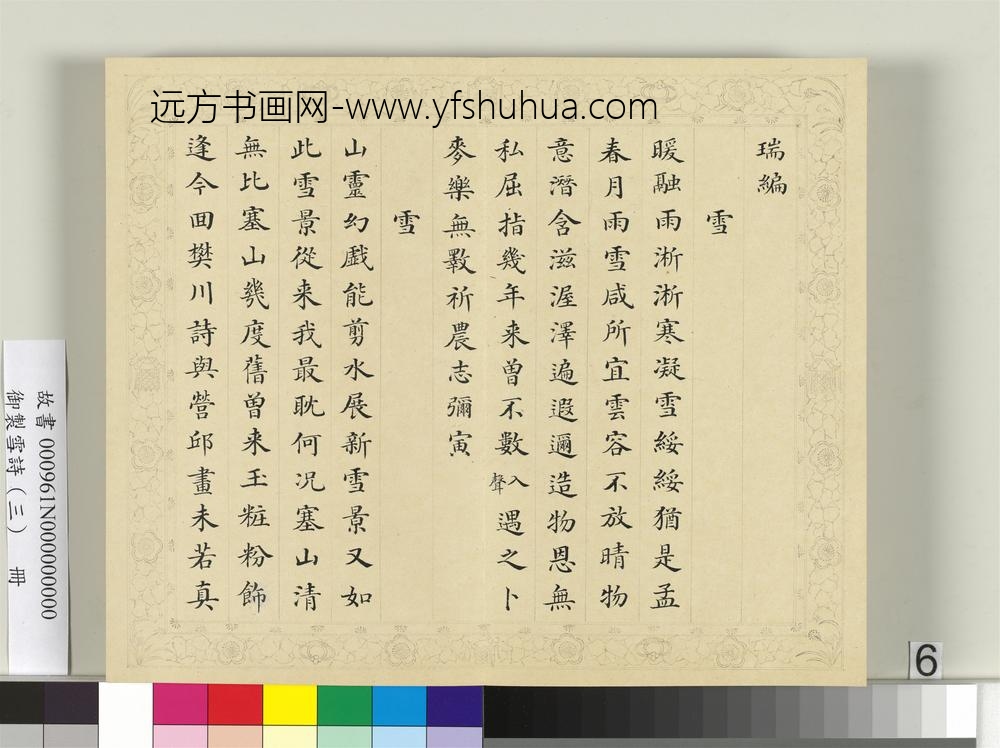 远方书画网-www.yfshuhua.com
瑞編
雪
暖融雨淅淅寒凝雪綏綏猶是孟
春月雨雪咸所宜雲容不放晴物
意潛含滋渥澤遍遐邇造物恩無
私屈指幾年来曽不數入聲遇之卜
麥樂無斁祈農志彌寅
雪
山靈幻戯能剪水展新雪景又如
此雪景從来我最耽何况塞山清
無比塞山幾度舊曽来玉粧粉飾
逢今囬樊川詩與營邱畫未若真
故書 000961N000000000
御製雪詩(三) 冊
6